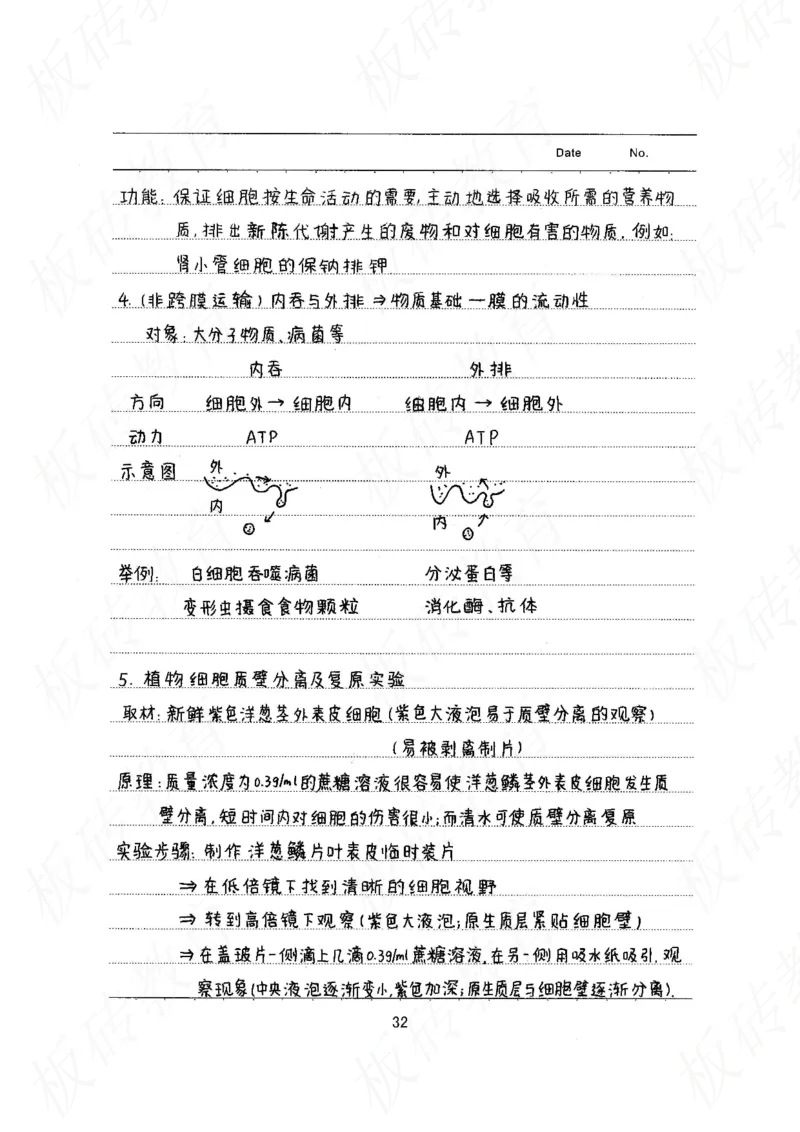 Date No.
功能: 保证细胞按生命活动的需要,主动地选择吸收所需的营养物
质,排出新陈代谢产生的废物和对细胞有害的物质. 例如:
肾小管细胞的保钠排钾
4. (非跨膜运输) 内吞与外排 ⇒物质基础 — 膜的流动性
对象: 大分子物质、病菌等
内吞 外排
方向 细胞外→细胞内 细胞内→细胞外
动力 ATP ATP
示意图 外 外
内 内
举例: 白细胞吞噬病菌 分泌蛋白等
变形虫摄食食物颗粒 消化酶、抗体
5. 植物细胞质壁分离及复原实验
取材: 新鲜紫色洋葱茎外表皮细胞(紫色大液泡易于质壁分离的观察)
(易被剥离制片)
原理: 质量浓度为0.3g/ml的蔗糖溶液很容易使洋葱鳞茎外表皮细胞发生质
壁分离,短时间内对细胞的伤害很小;而清水可使质壁分离复原
实验步骤: 制作洋葱鳞片叶表皮临时装片
⇒在低倍镜下找到清晰的细胞视野
⇒ 转到高倍镜下观察(紫色大液泡;原生质层紧贴细胞壁)
⇒在盖玻片一侧滴上几滴0.3g/ml蔗糖溶液,在另一侧用吸水纸吸引.观
察现象(中央液泡逐渐变小,紫色加深;原生质层与细胞壁逐渐分离).
32
板砖教育